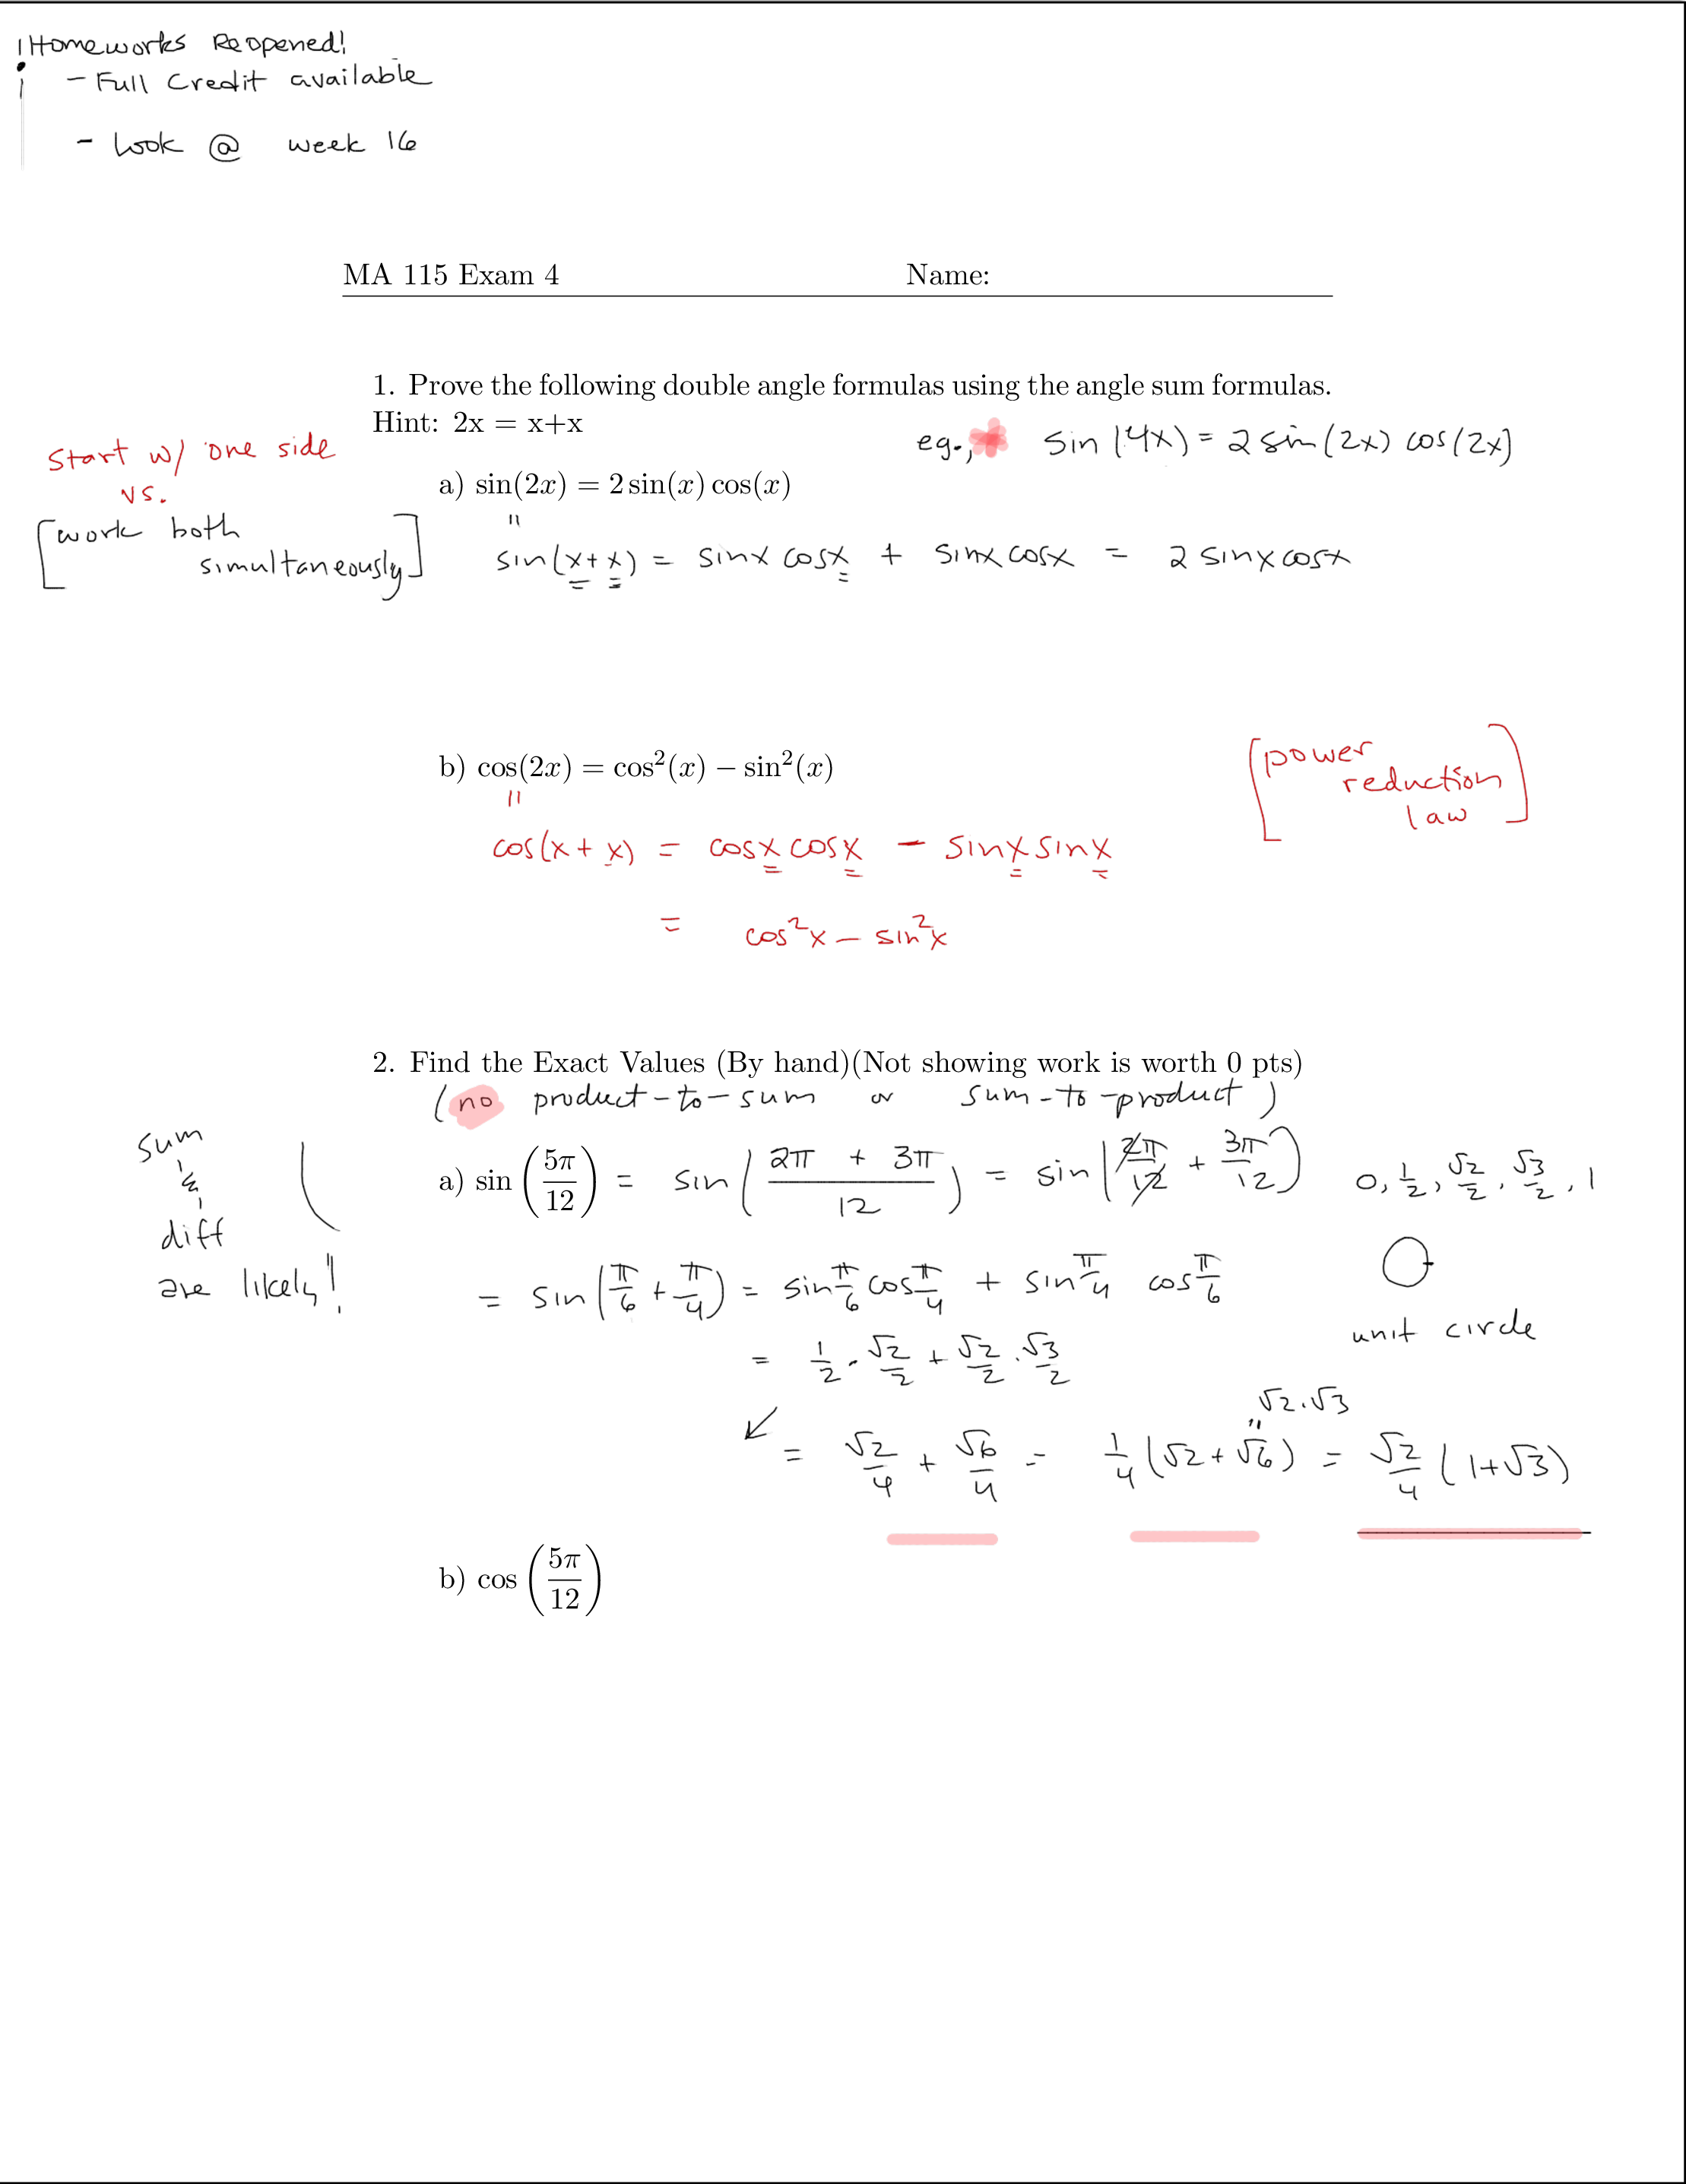 ! Homeworks Reopened!
- Full Credit available
- Look @ week 16
MA 115 Exam 4 Name:
1. Prove the following double angle formulas using the angle sum formulas.
Hint: 2x = x+x
eg., * sin(4x) = 2 sin(2x) cos(2x)
Start w/ one side
vs.
[work both
simultaneously]
a) sin(2x) = 2 sin(x) cos(x)
"
sin(x+x) = sinx cosx + sinx cosx = 2 sinx cosx
b) cos(2x) = cos²(x) − sin²(x)
"
[power
reduction
law]
cos(x+x) = cosx cosx − sinx sinx
= cos²x − sin²x
2. Find the Exact Values (By hand)(Not showing work is worth 0 pts)
(no product-to-sum or sum-to-product)
sum
&
diff
are likely!
a) sin(5π/12) = sin((2π + 3π)/12) = sin(2π/12 + 3π/12) 0, 1/2, √2/2, √3/2, 1
= sin(π/6 + π/4) = sin π/6 cos π/4 + sin π/4 cos π/6
unit circle
= 1/2 · √2/2 + √2/2 · √3/2
√2·√3
"
= √2/4 + √6/4 = 1/4(√2+√6) = √2/4(1+√3)
b) cos(5π/12)